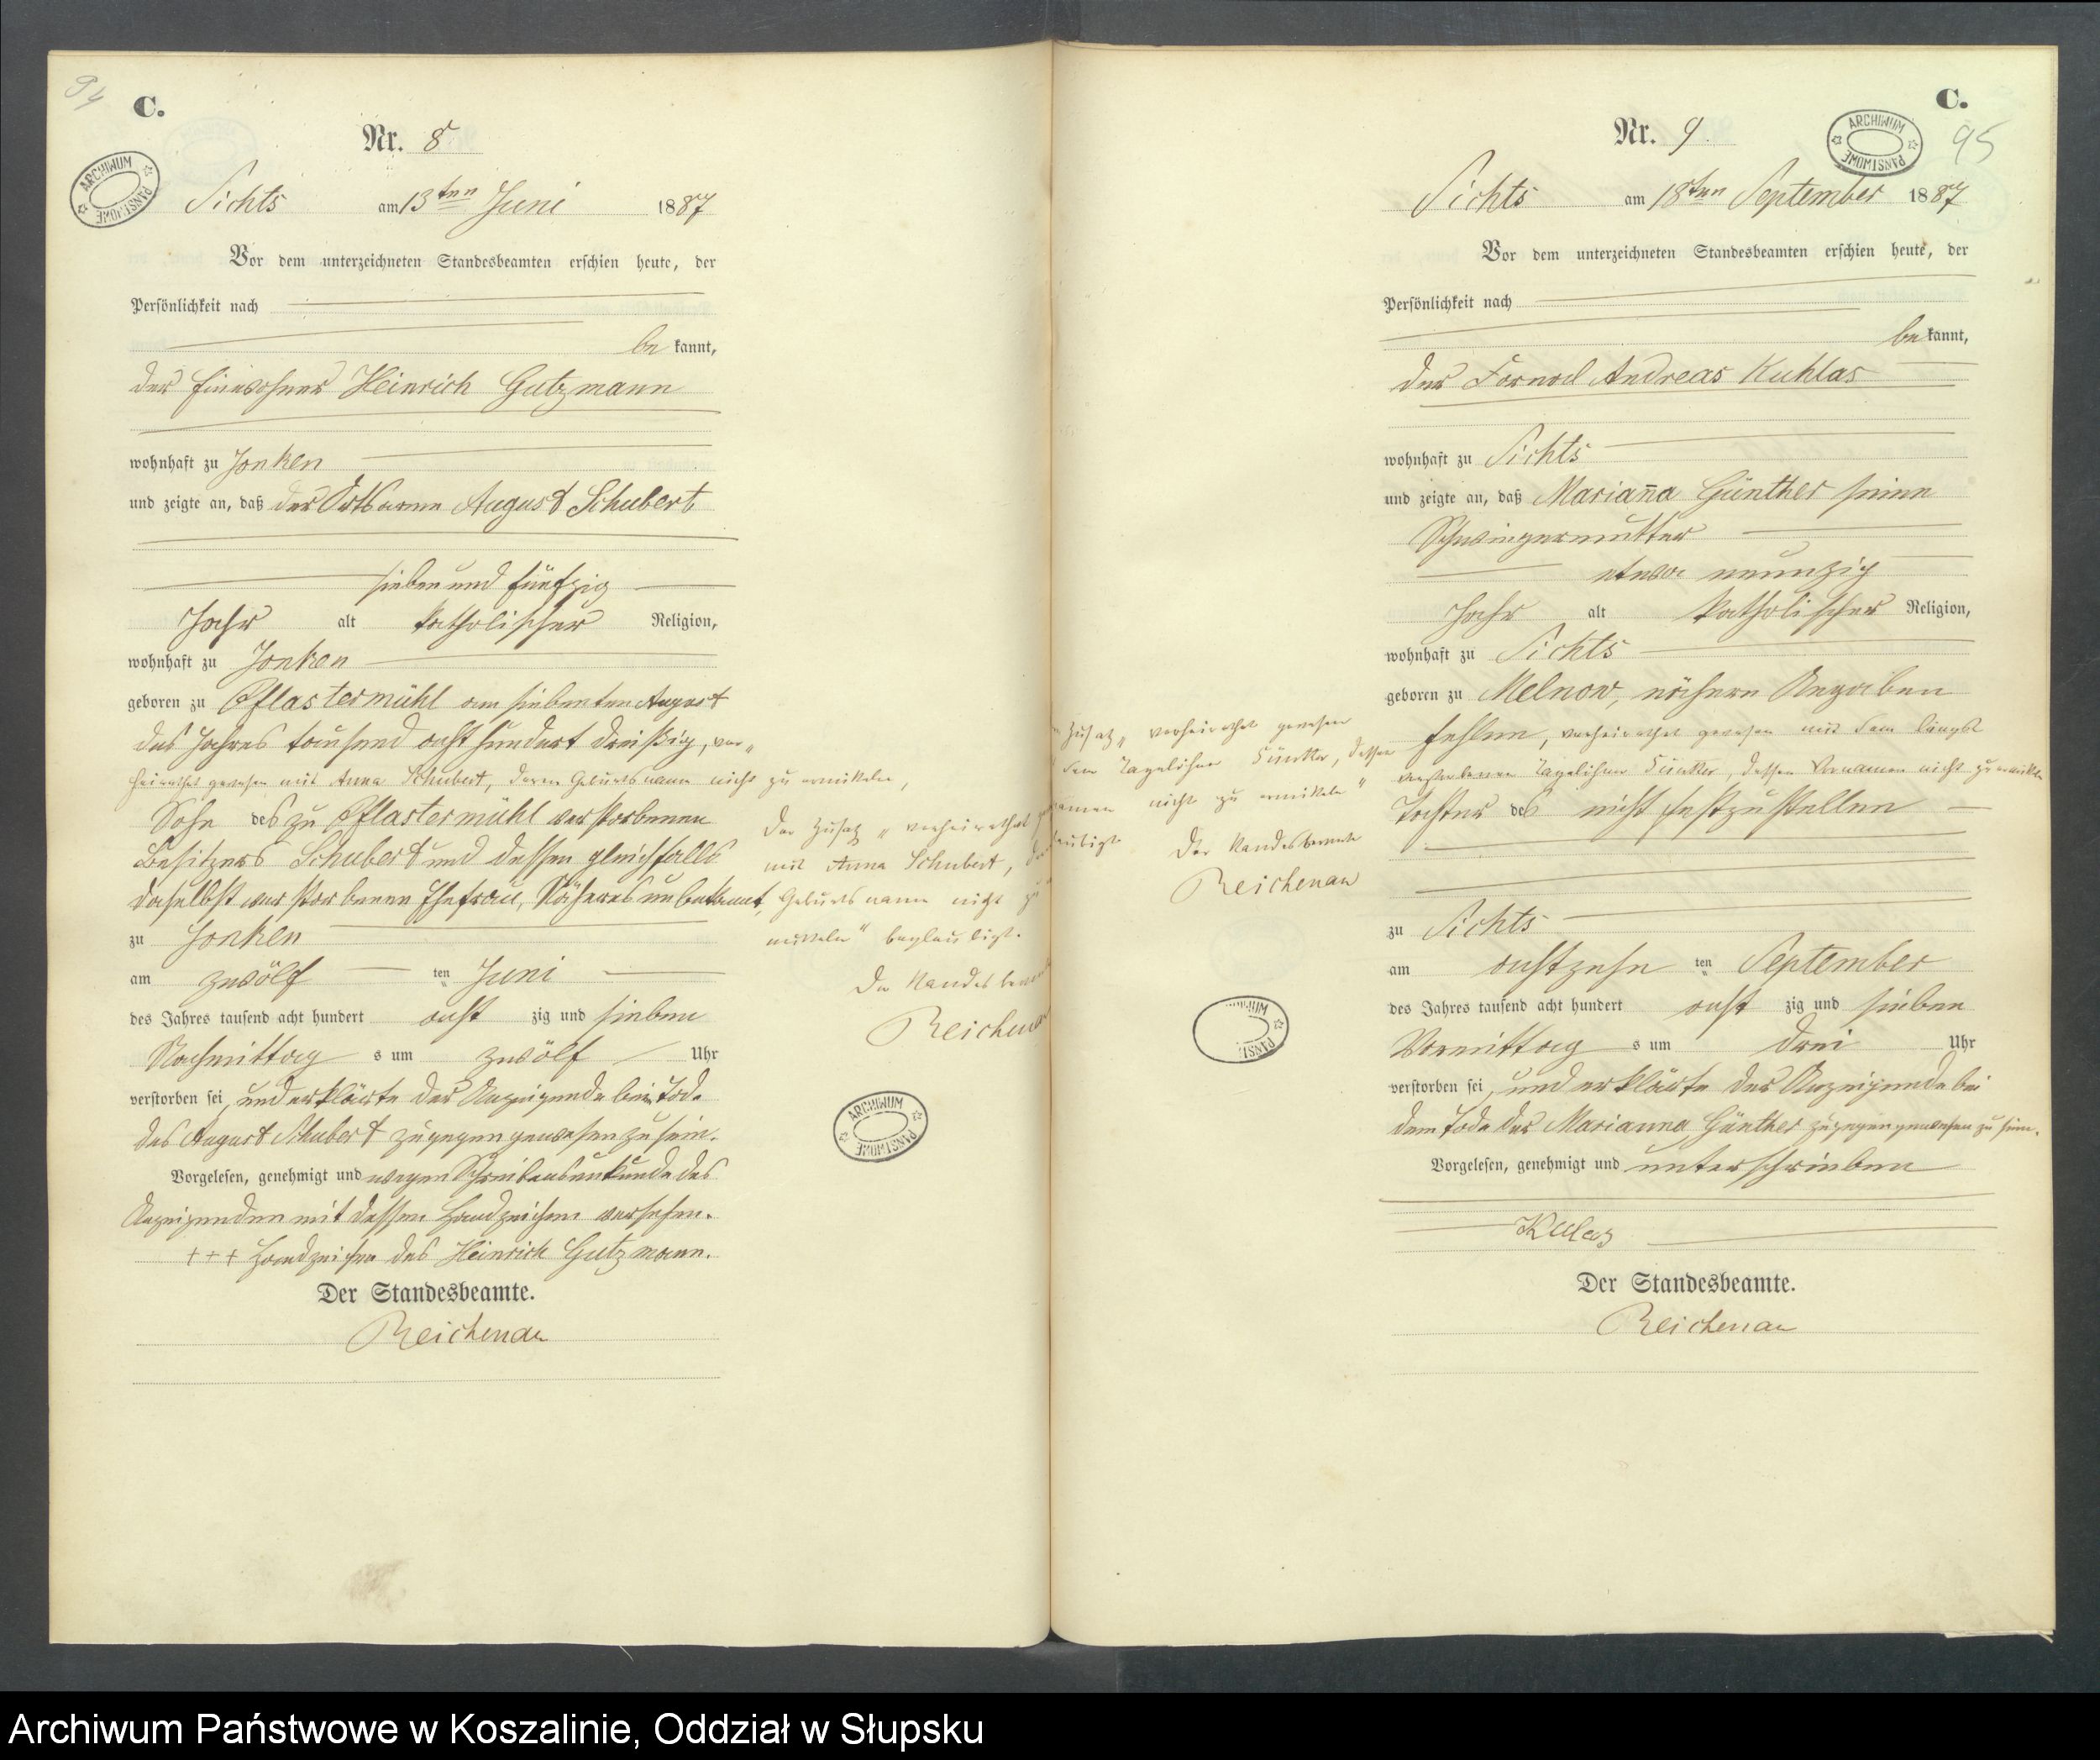 94
C.
Nr. 8
ARCHIWUM PAŃSTWOWE
Sichts am 13ten Juni 1887
Vor dem unterzeichneten Standesbeamten erschien heute, der
Persönlichkeit nach
be kannt,
der Einwohner Heinrich Gutzmann
wohnhaft zu Jonken
und zeigte an, daß der Ortsarme August Schubert,
sieben und fünfzig
Jahr alt katholischer Religion,
wohnhaft zu Jonken
geboren zu Pflastermühl am siebenten August
des Jahres tausend acht hundert dreißig, ver-
heirathet gewesen mit Anna Schubert, deren Geburtsname nicht zu ermitteln,
Sohn des zu Pflastermühl verstorbenen
Besitzers Schubert und dessen gleichfalls
daselbst verstorbenen Ehefrau, Näheres unbekannt,
zu Jonken
am zwölf ten Juni
des Jahres tausend acht hundert acht zig und sieben
Nachmittag s um zwölf Uhr
verstorben sei, und erklärte der Anzeigende beim Tode
des August Schubert zugegen gewesen zu sein.
Vorgelesen, genehmigt und wegen Schreibensunkunde des
Anzeigenden mit dessen Handzeichen versehen.
+++ Handzeichen des Heinrich Gutzmann.
Der Standesbeamte.
Reichenau
Der Zusatz „verheirathet
mit Anna Schubert,
Geburtsname nicht zu
mitteln" beglaubigt.
Der Standesbeamte
Reichenau
ARCHIWUM PAŃSTWOWE
C.
95
Nr. 9.
ARCHIWUM PAŃSTWOWE
Sichts am 18ten September 1887
Vor dem unterzeichneten Standesbeamten erschien heute, der
Persönlichkeit nach
be kannt,
der Fornal Andreas Kuhlas
wohnhaft zu Sichts
und zeigte an, daß Marianna Günther seine
Schwiegermutter
etwa neunzig
Jahr alt katholischer Religion,
wohnhaft zu Sichts
geboren zu Melnow, nähere Angaben
fehlen, verheirathet gewesen mit dem längst
verstorbenen Tagelöhner Günther, dessen Vornamen nicht zu ermitteln
Tochter des nicht festzustellen
zu Sichts
am achtzehn ten September
des Jahres tausend acht hundert acht zig und sieben
Vormittag s um drei Uhr
verstorben sei, und erklärte der Anzeigende bei
dem Tode der Marianna Günther zugegen gewesen zu sein.
Vorgelesen, genehmigt und unterschrieben
Kulas
Der Standesbeamte.
Reichenau
Zusatz „verheirathet gewesen
dem Tagelöhner Günther, dessen
namen nicht zu ermitteln"
laubigt
Der Standesbeamte
Reichenau
Archiwum Państwowe w Koszalinie, Oddział w Słupsku